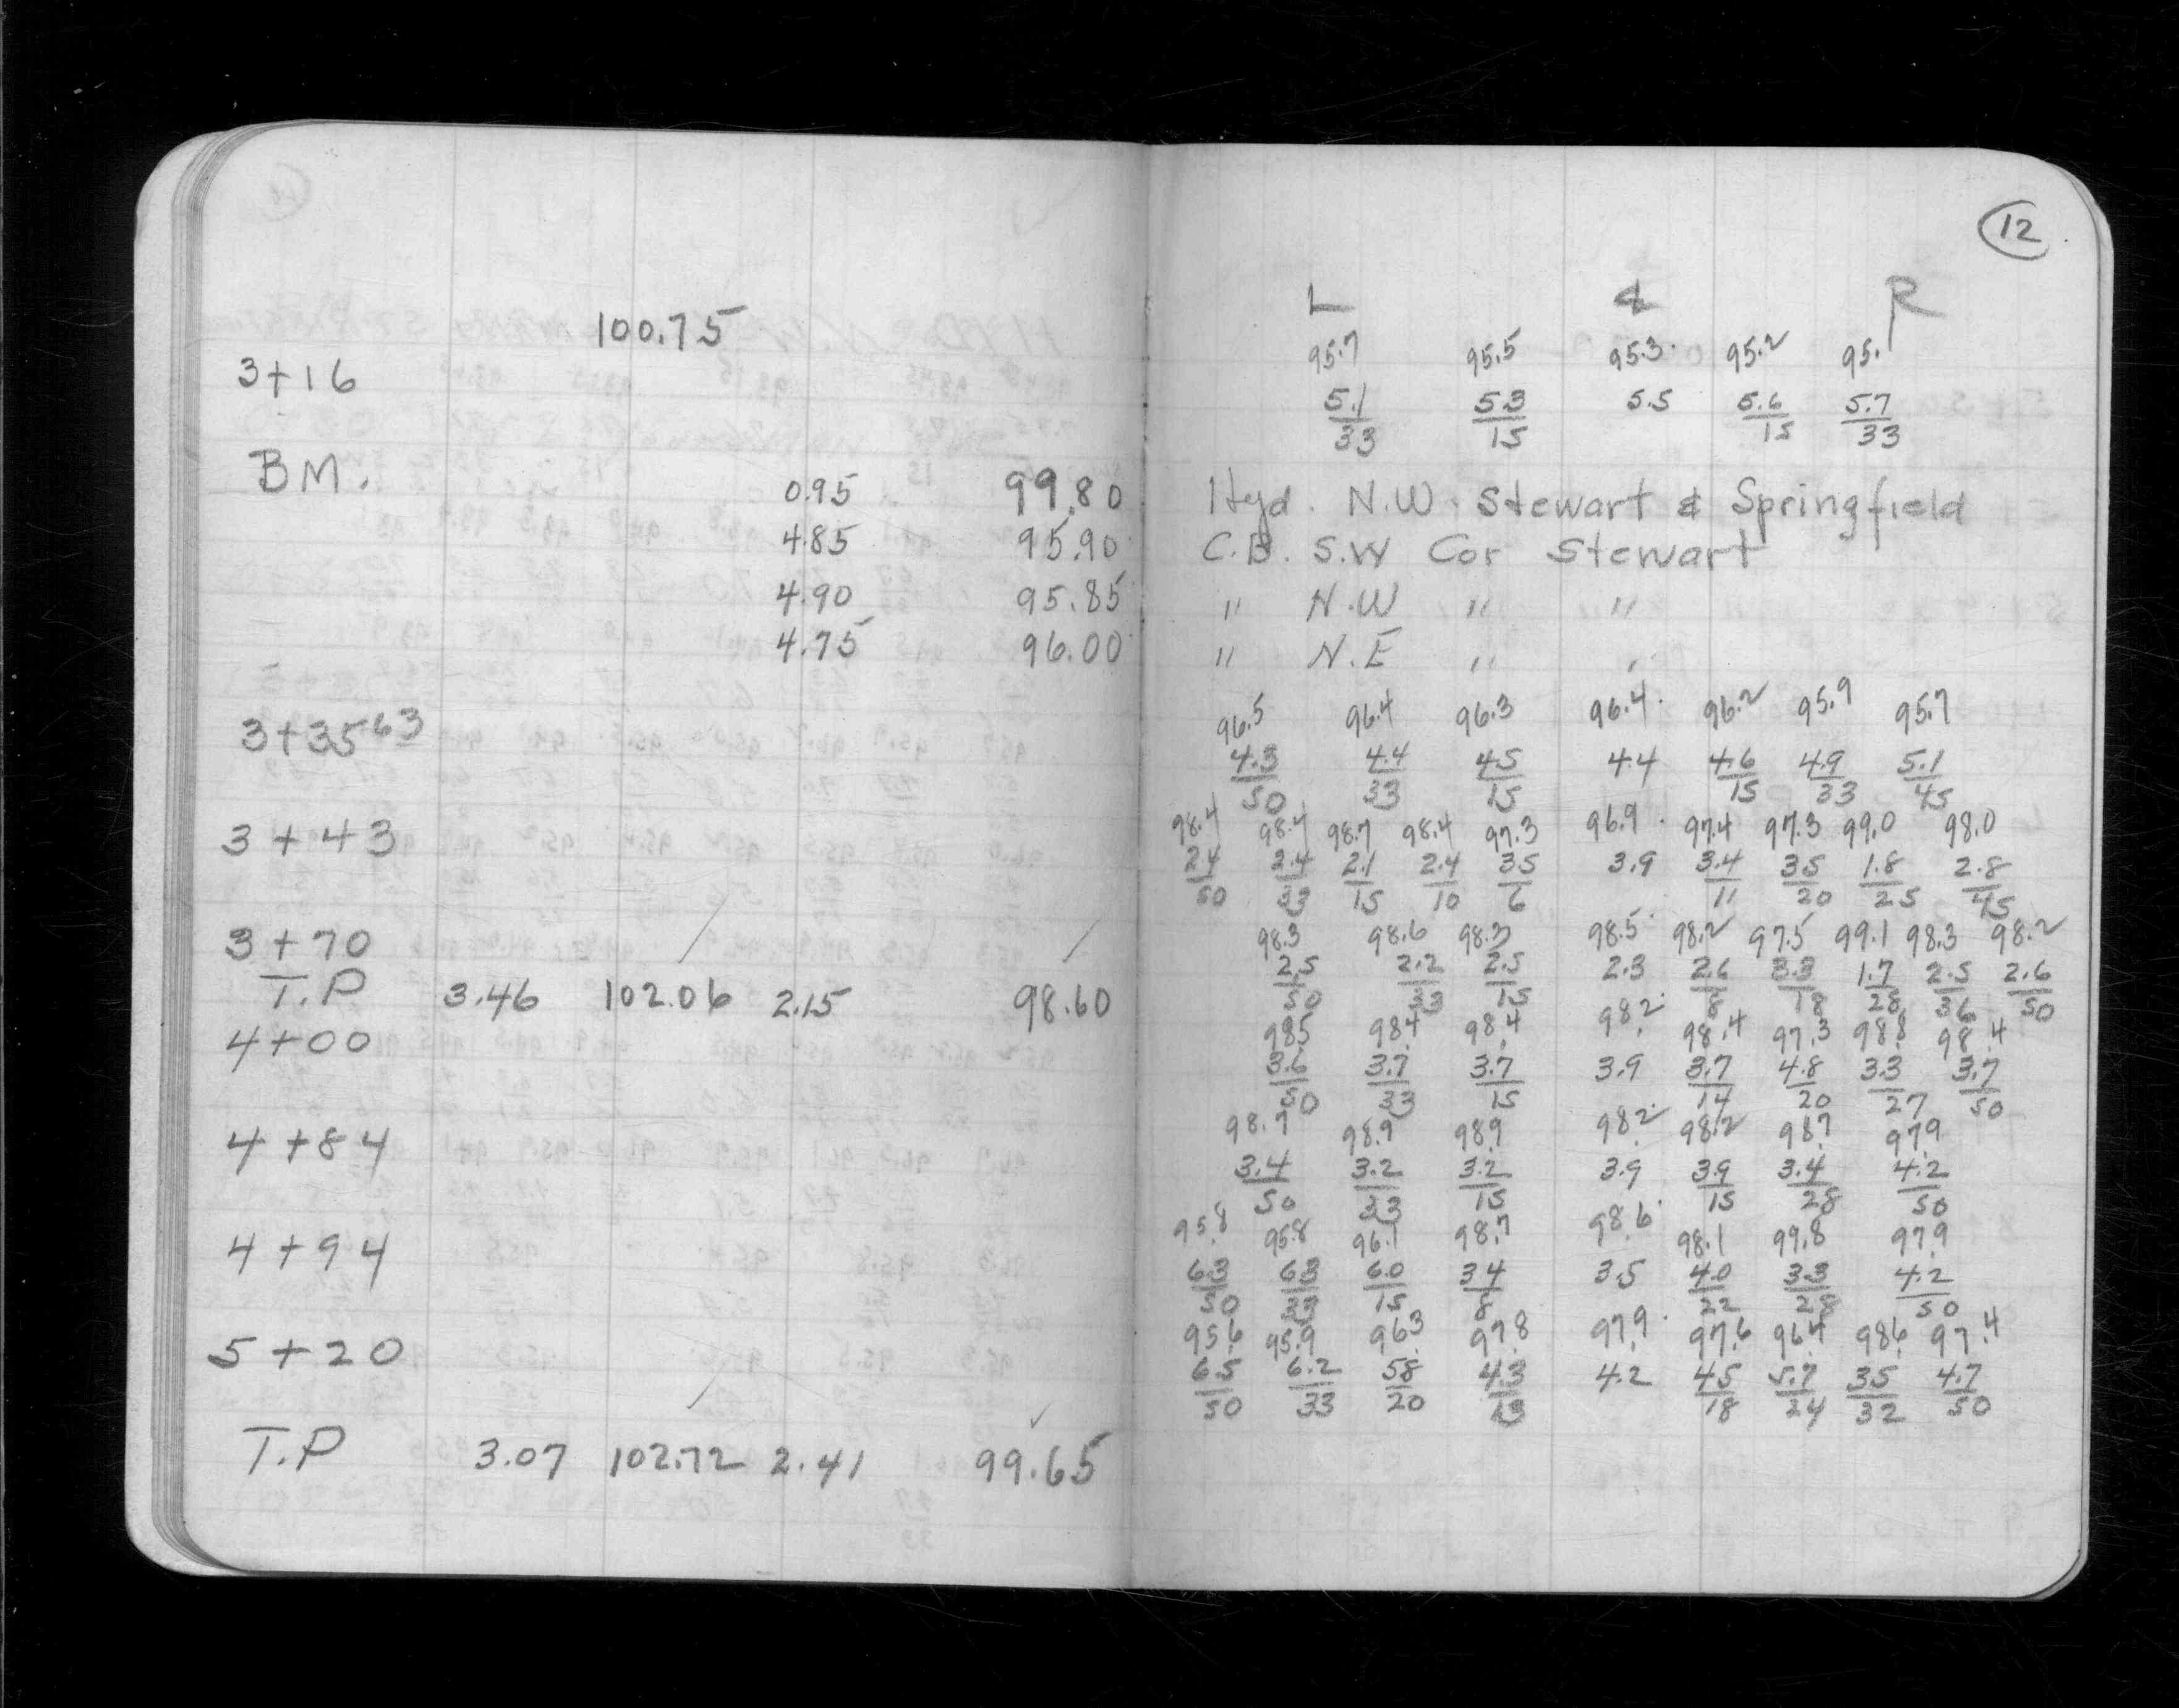 12
L ℄ R
100.75
95.7 95.5 95.3 95.2 95.1
3+16
5.1/33 5.3/15 5.5 5.6/15 5.7/33
BM. 0.95 99.80 Hyd. N.W. Stewart & Springfield
4.85 95.90 C.B. S.W Cor Stewart
4.90 95.85 " N.W " "
4.75 96.00 " N.E " "
96.5 96.4 96.3 96.4 96.2 95.9 95.7
3+35 63
4.3/50 4.4/33 4.5/15 4.4 4.6/15 4.9/33 5.1/45
98.4 98.4 98.7 98.4 97.3 96.9 97.4 97.3 99.0 98.0
3+43
2.4/50 2.4/33 2.1/15 2.4/10 3.5/6 3.9 3.4/11 3.5/20 1.8/25 2.8/45
98.3 98.6 98.3 98.5 98.2 97.5 99.1 98.3 98.2
3+70
2.5/50 2.2/33 2.5/15 2.3 2.6/8 3.3/18 1.7/28 2.5/36 2.6/50
T.P 3.46 102.06 2.15 98.60
98.5 98.4 98.4 98.2 98.4 97.3 98.8 98.4
4+00
3.6/50 3.7/33 3.7/15 3.9 3.7/14 4.8/20 3.3/27 3.7/50
98.7 98.9 98.9 98.2 98.2 98.7 97.9
4+84
3.4/50 3.2/33 3.2/15 3.9 3.9/15 3.4/28 4.2/50
95.8 95.8 96.1 98.7 98.6 98.1 99.8 97.9
4+94
6.3/50 6.3/33 6.0/15 3.4/8 3.5 4.0/22 3.3/28 4.2/50
95.6 95.9 96.3 97.8 97.9 97.6 96.4 98.6 97.4
5+20
6.5/50 6.2/33 5.8/20 4.3/13 4.2 4.5/18 5.7/24 3.5/32 4.7/50
T.P 3.07 102.72 2.41 99.65